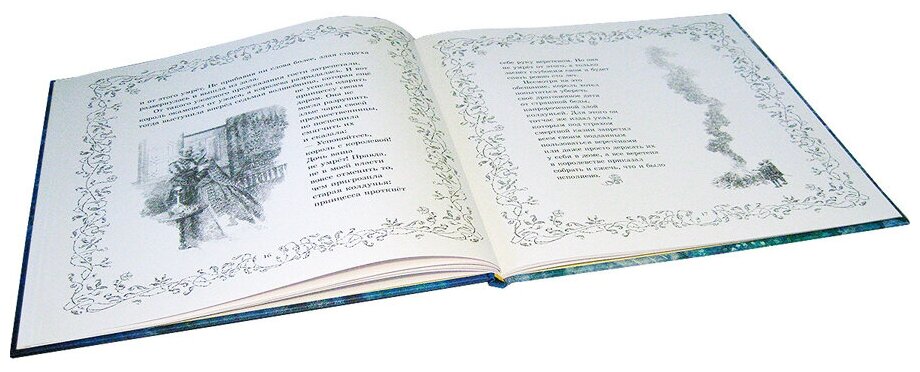 и от этого умрёт. Не прибавив ни слова более, злая старуха
развернулась и вышла из зала.
От такого ужасного предсказания гости затрепетали,
король окаменел от ужаса, а королева разрыдалась. И вот
тогда выступила вперёд седьмая волшебница, которая ещё
не успела одарить
принцессу своим
даром. Она не
могла разрушить
злые чары своей
предшественницы,
но поспешила
смягчить их
и сказала:
Успокойтесь,
король с королевой!
Дочь ваша
не умрёт! Правда,
не в моей власти
вовсе отменить то,
чем пригрозила
старая колдунья:
принцесса проткнёт
себе руку веретеном. Но она
не умрёт от этого, а только
заснёт глубоким сном и будет
спать ровно сто лет.
Несмотря на это
обещание, король хотел
попытаться уберечь
своё драгоценное дитя
от страшной беды,
напророченной злой
колдуньей. Для этого он
тотчас же издал указ,
которым под страхом
смертной казни запретил
всем своим подданным
пользоваться веретенами
или даже просто держать их
у себя в доме, а все веретена
в королевстве приказал
собрать и сжечь, что и было
исполнено.